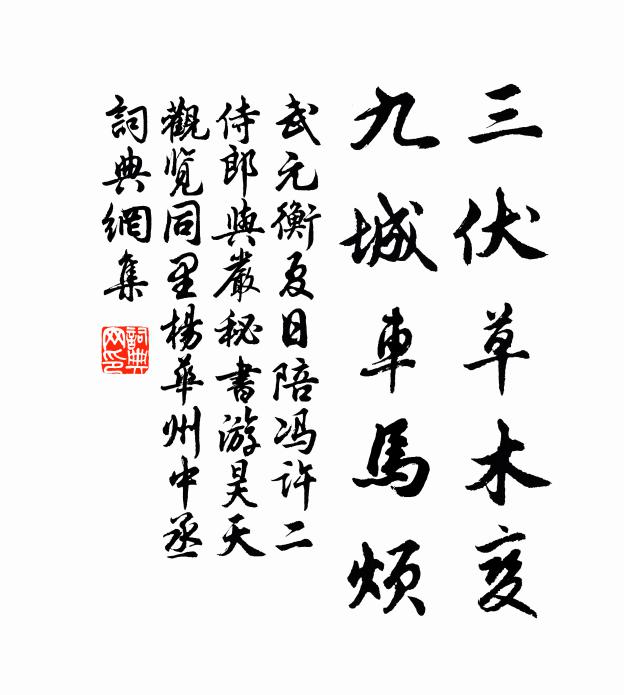 三伏草木变
九城車馬煩
武元衡夏日陪冯許二
侍郎與嚴秘書游昊天
觀覧同里楊華州中丞
詞典網集
詞典
网印